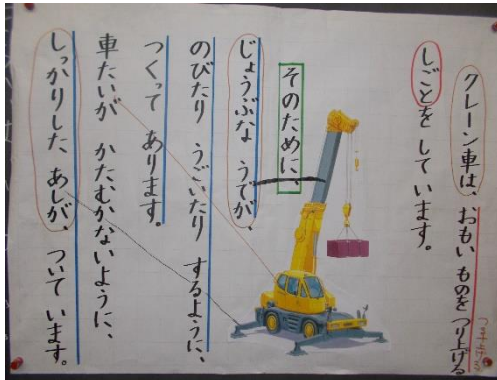 クレーン車は、おもい ものを つり上げる
しごとを して います。
そのために、
じょうぶな うでが、
のびたり うごいたり するように、
つくって あります。
車たいが かたむかないように、
しっかりした あしが、ついて います。